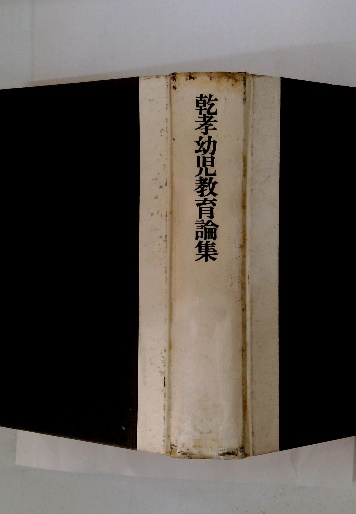 乾孝幼児教育論集